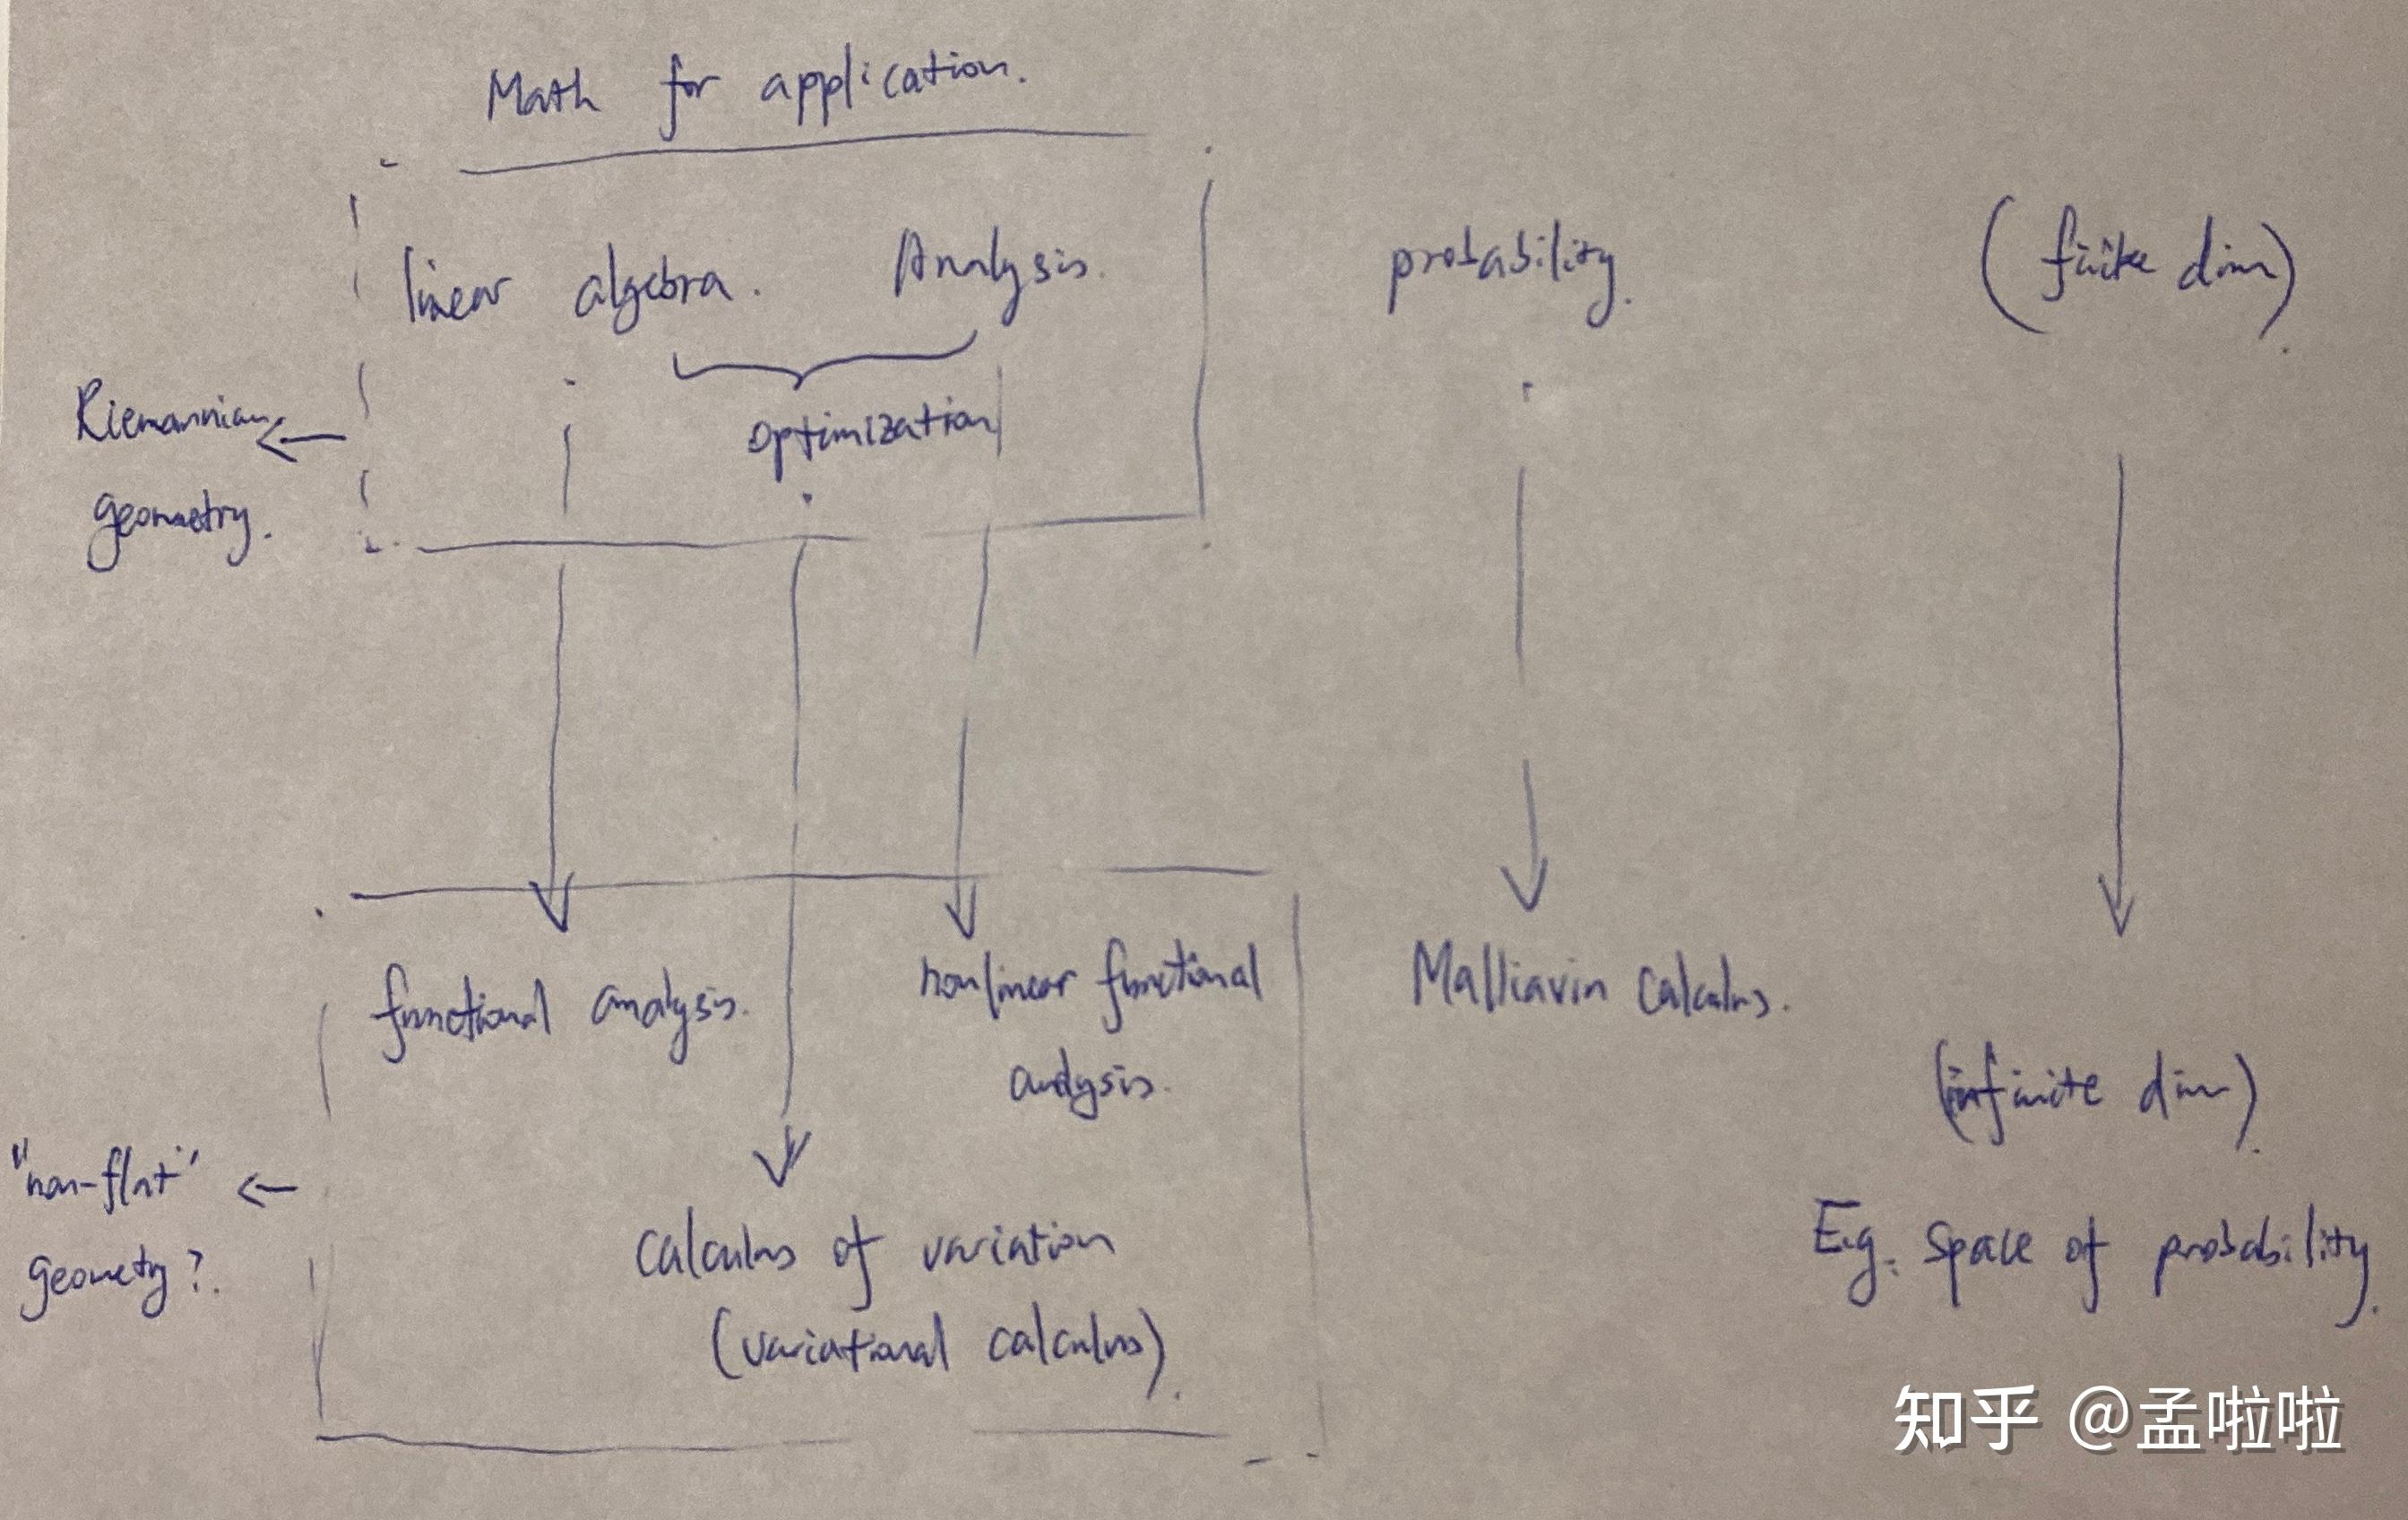 Math for application.
linear algebra. Analysis. probability. (finite dim).
optimization
Riemannian
geometry.
functional analysis. nonlinear functional
analysis.
Malliavin calculus.
(infinite dim).
"non-flat"
geometry?.
calculus of variation
(variational calculus).
E.g. space of probability.
知乎 @孟啦啦